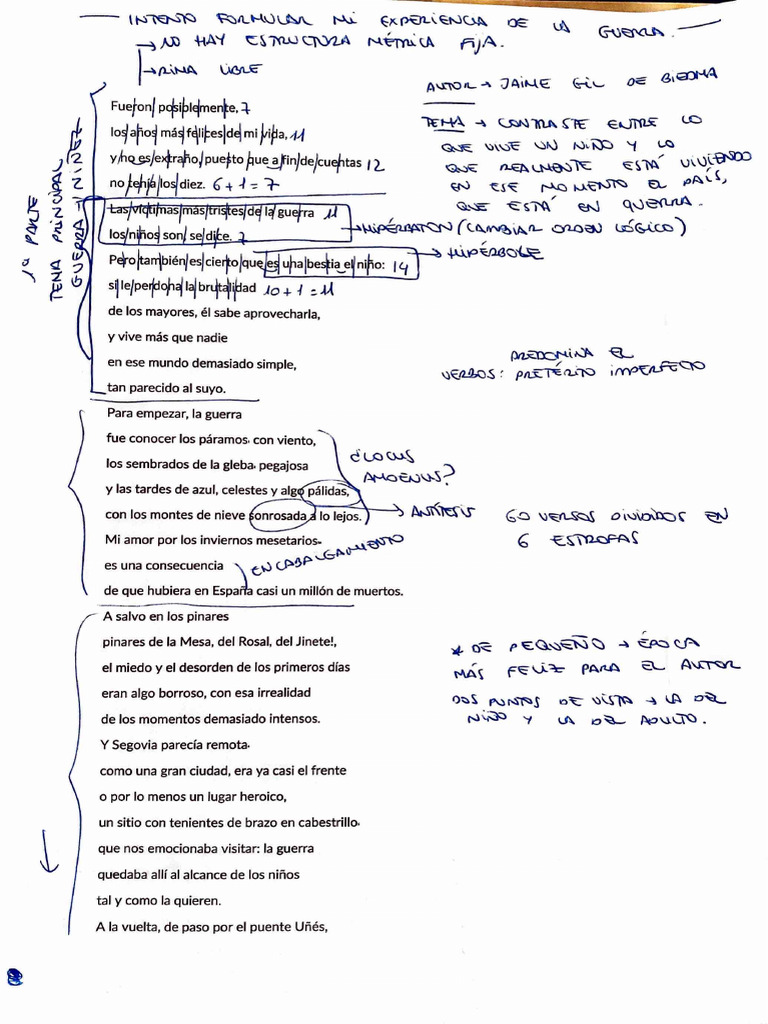 INTENTO FORMULAR MI EXPERIENCIA DE LA GUERRA.
→ NO HAY ESTRUCTURA MÉTRICA FIJA.
→ RIMA LIBRE
AUTOR → JAIME GIL DE BIEDMA
TEMA → CONTRASTE ENTRE LO
QUE VIVE UN NIÑO Y LO
QUE REALMENTE ESTÁ VIVIENDO
EN ESE MOMENTO EL PAÍS,
QUE ESTÁ EN GUERRA.
1ª PARTE
TEMA PRINCIPAL
GUERRA Y NIÑEZ
Fueron, posiblemente, 7
los años más felices de mi vida, 11
y no es extraño, puesto que a fin de cuentas 12
no tenía los diez. 6 + 1 = 7
Las víctimas más tristes de la guerra 11
los niños son, se dice. 7
→ HIPÉRBATON (CAMBIAR ORDEN LÓGICO)
Pero también es cierto que es una bestia el niño: 14
→ HIPÉRBOLE
si le perdona la brutalidad 10 + 1 = 11
de los mayores, él sabe aprovecharla,
y vive más que nadie
en ese mundo demasiado simple,
tan parecido al suyo.
PREDOMINA EL
VERBOS: PRETÉRITO IMPERFECTO
Para empezar, la guerra
fue conocer los páramos con viento,
los sembrados de la gleba pegajosa
y las tardes de azul, celestes y algo pálidas,
con los montes de nieve sonrosada a lo lejos.
¿LOCUS
AMOENUS?
→ ANTÍTESIS
Mi amor por los inviernos mesetarios
es una consecuencia
de que hubiera en España casi un millón de muertos.
ENCABALGAMIENTO
60 VERSOS DIVIDIDOS EN
6 ESTROFAS
A salvo en los pinares
pinares de la Mesa, del Rosal, del Jinete!,
el miedo y el desorden de los primeros días
eran algo borroso, con esa irrealidad
de los momentos demasiado intensos.
Y Segovia parecía remota
como una gran ciudad, era ya casi el frente
o por lo menos un lugar heroico,
un sitio con tenientes de brazo en cabestrillo
que nos emocionaba visitar: la guerra
quedaba allí al alcance de los niños
tal y como la quieren.
A la vuelta, de paso por el puente Uñés,
* DE PEQUEÑO → ÉPOCA
MÁS FELIZ PARA EL AUTOR
DOS PUNTOS DE VISTA → LA DEL
NIÑO Y LA DEL ADULTO.